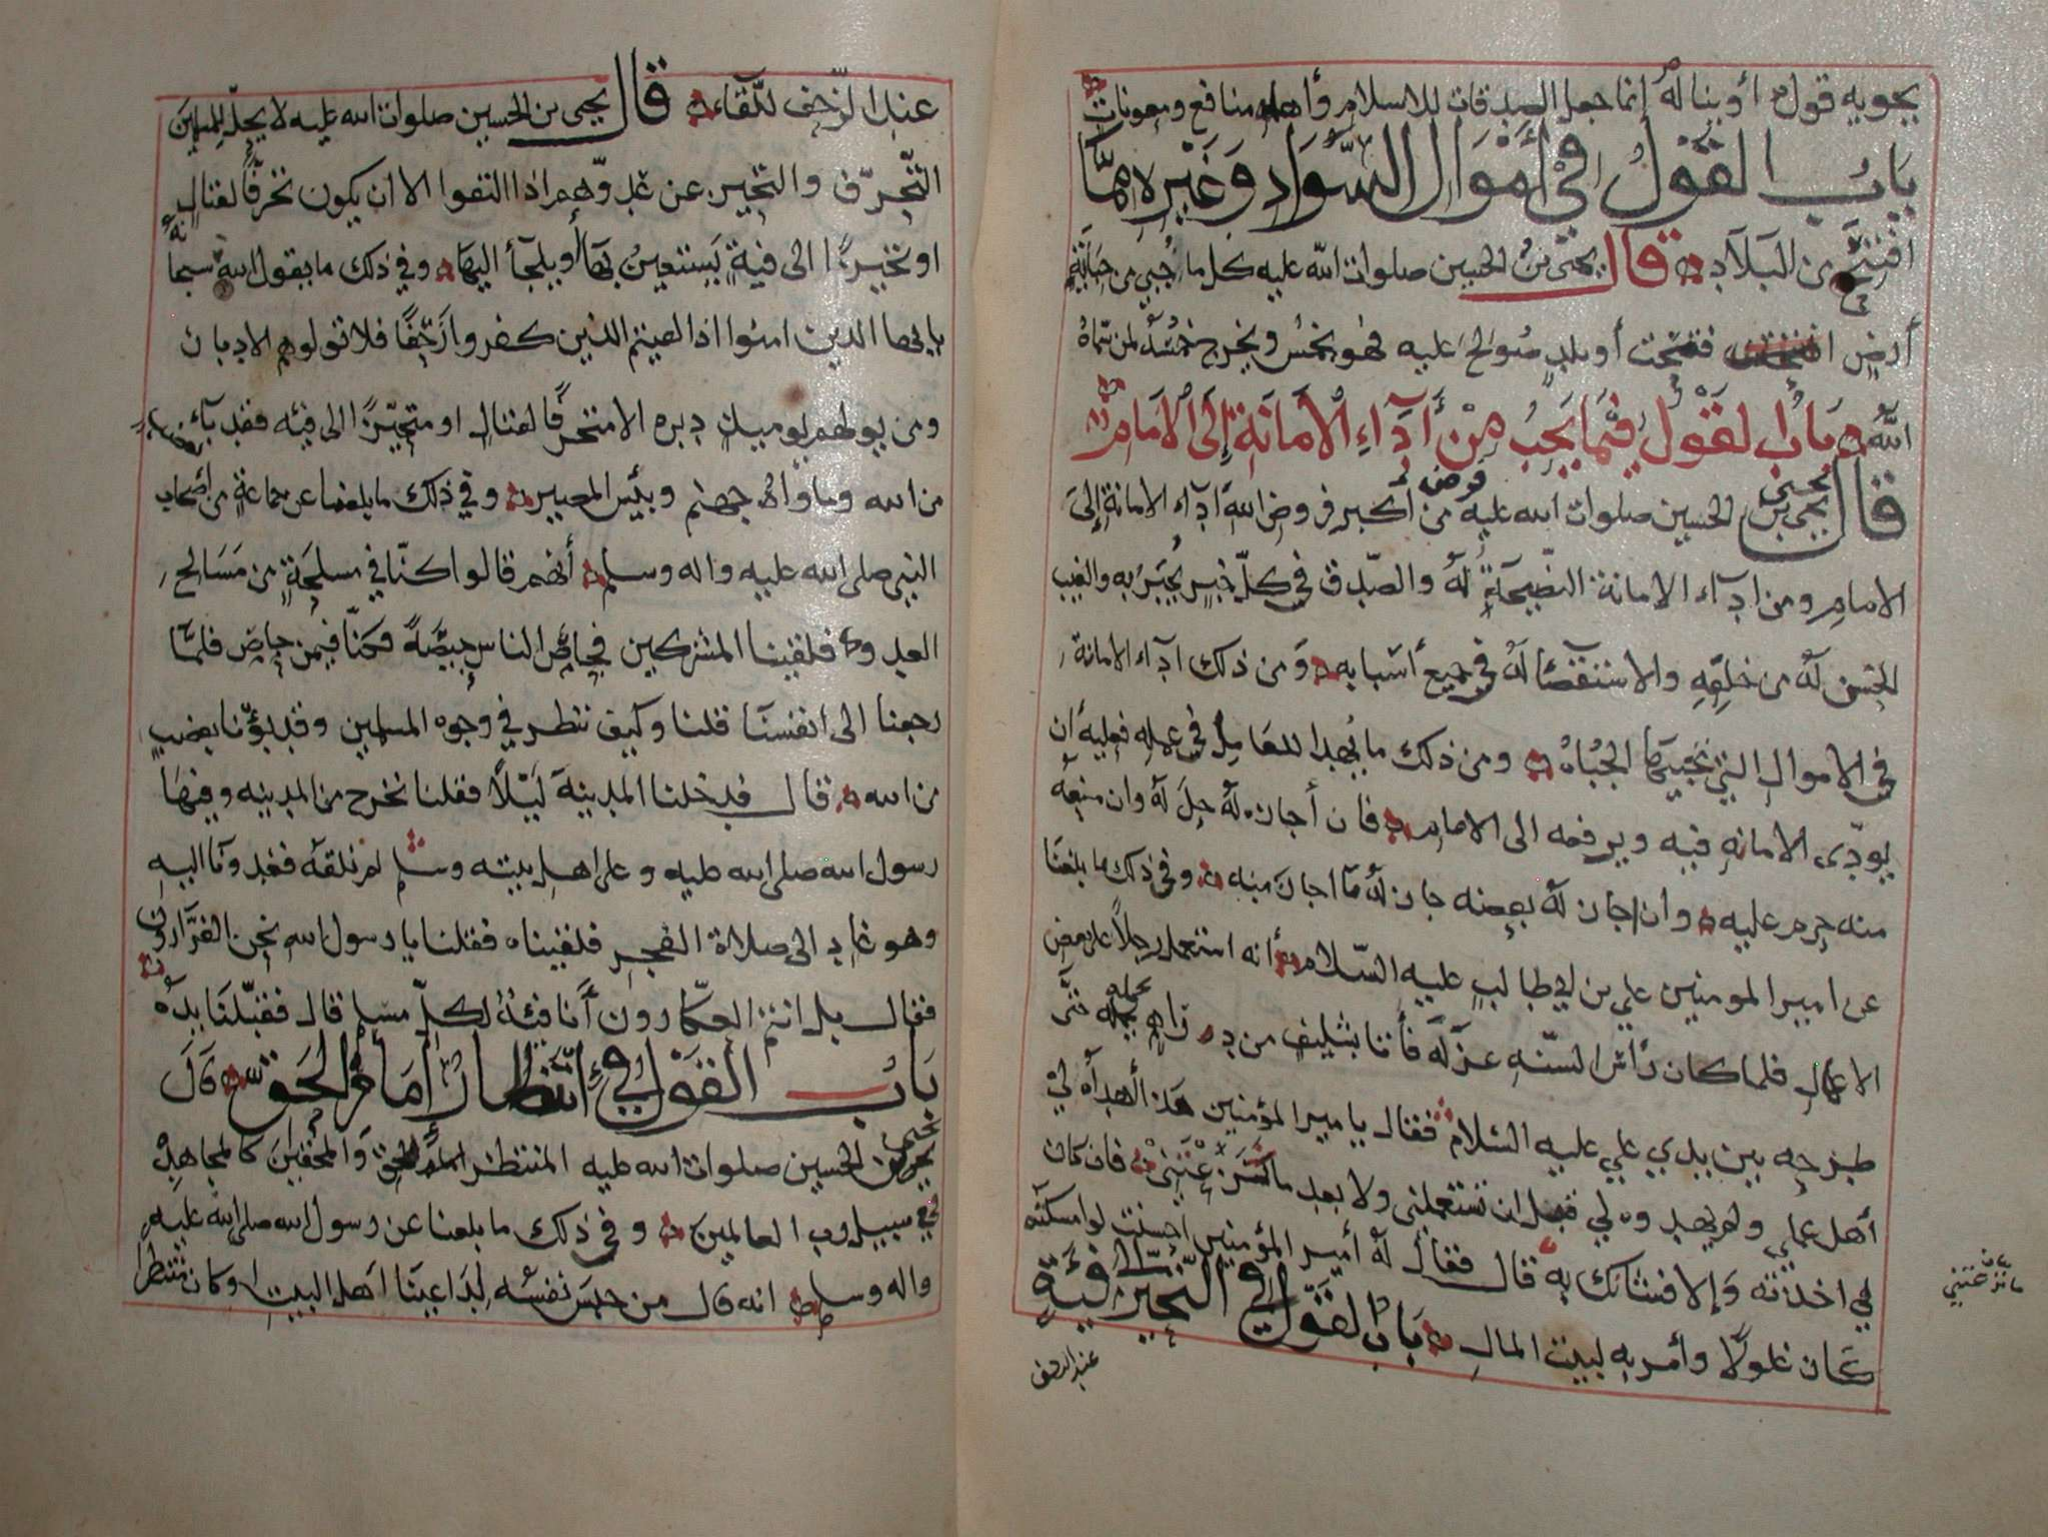 يحويه قول أو يناله إنما جعل الصدقات للاسلام وأهله منافع ومعونات
باب القول في أموال السواد وغيره مما
افتتح من البلاد قال يحيى بن الحسين صلوات الله عليه كل ما جبي من جباية
أرض افتتحت أو بلد صولح عليه فهو يخمس ويخرج خمسه لمن سماه
الله باب القول فيما يجب من أداء الأمانة إلى الامام
قال يحيى بن الحسين صلوات الله عليه من أكبر فروض الله اداء الامانة إلى
الامام ومن ادآء الامانة النصيحة له والصدق في كل خبر يخبر به والغيب
الحسن له من خلفه والاستقصآ له في جميع أسبابه ومن ذلك ادآء الامانة
في الاموال التي تجبيها الجباه ومن ذلك ما يهدا للعامل في عمله فعليه أن
يودى الامانه فيه ويرفعه الى الامام فان أجازه له حل له وان منعه
منه حرم عليه وان اجاز له بعضه جاز له ما اجاز منه وفي ذلك ما بلغنا
عن امير المومنين علي بن ابي طالب عليه السلام أنه استعمل رجلا على بعض
الاعمال فلما كان رأس السنه عزله فأتا بثلثين من دراهم يحمله حتى
طرحه بين يدي علي عليه السلام فقال يا مير المؤمنين هذا أهداه لي
أهل عملي ولم يهدوه لي قبل ان تستعملنى ولا بعد ما عزلتني فان كان
لي اخذته وإلا فشانك به قال فقال له أمير المؤمنين احسنت لو امسكته
كان غلولا وأمر به لبيت المال باب القول في التحيز الى فية
عند الزحف
عند الزحف للقاء قال يحيى بن الحسين صلوات الله عليه لا يحل للمسلمين
التحرف والتحيز عن عدوهم اذا التقوا الا ان يكون تحرفا لقتال
او تحيزا الى فية يستعين بها أو يلجأ اليها وفي ذلك ما يقول الله سبحانه
يا ايها الذين امنوا اذا لقيتم الذين كفروا زحفا فلا تولوهم الادبار
ومن يولهم يوميذ دبره الا متحرفا لقتال او متحيزا الى فيه فقد باء بغضب
من الله وماواه جهنم وبئس المصير وفي ذلك ما بلغنا عن جماعة من أصحاب
النبي صلى الله عليه واله وسلم أنهم قالوا كنا في مسلحة من مسالح
العدو فلقينا المشركين فحاص الناس حيصة فكنا فيمن حاص فلما
رجعنا الى انفسنا قلنا وكيف ننظر في وجوه المسلمين وقد بؤنا بغضب
من الله قال فدخلنا المدينة ليلا فقلنا نخرج من المدينه وفيها
رسول الله صلى الله عليه وعلى اهل بيته وسلم لم نلقه فغدونا اليه
وهو غاد الى صلاة الفجر فلقيناه فقلنا يا رسول الله نحن الفرارون
فقال بل انتم العكارون أنا فئة لكل مسلم قال فقبلنا يده
باب القول في انتظار أمام الحق قال
يحيى بن الحسين صلوات الله عليه المنتظر الحق والمحقين كالمجاهد
في سبيل رب العالمين وفي ذلك ما بلغنا عن رسول الله صلى الله عليه
واله وسلم انه قال من حبس نفسه لداعينا اهل البيت او كان منتظرا